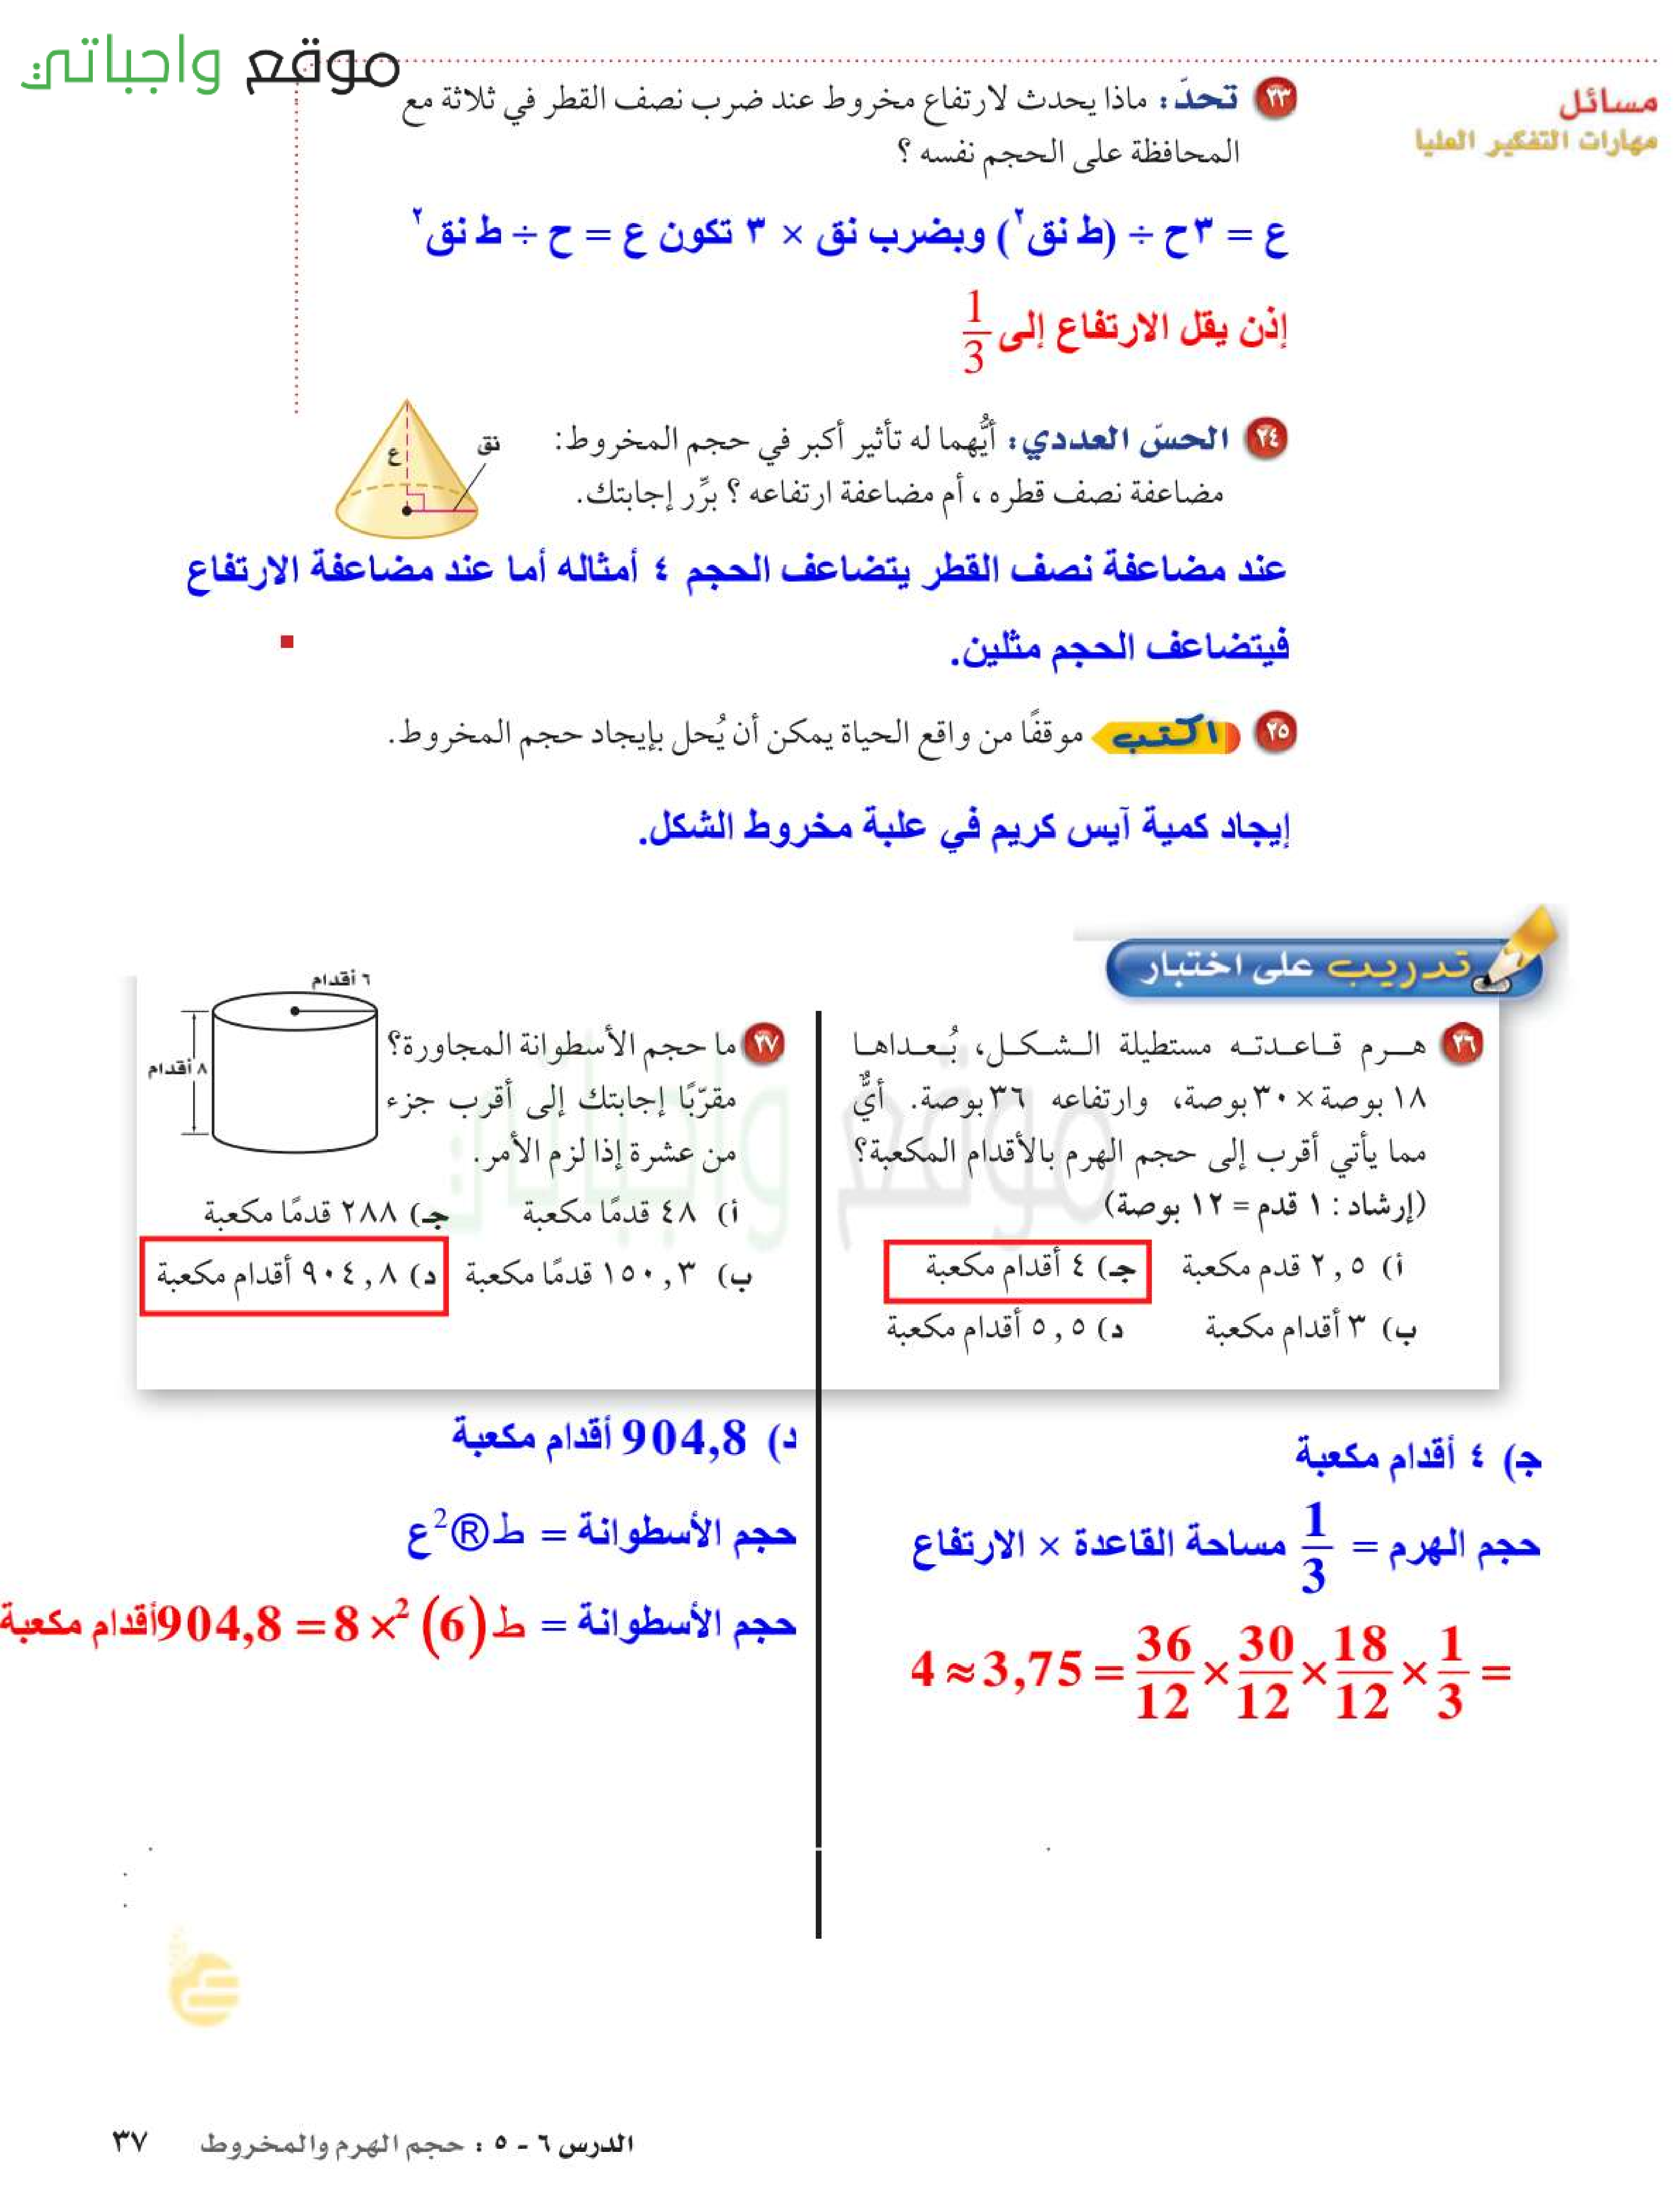 موقع واجباتي
مسائل
مهارات التفكير العليا
٢٣ تحدّ: ماذا يحدث لارتفاع مخروط عند ضرب نصف القطر في ثلاثة مع
المحافظة على الحجم نفسه ؟
ع = ٣ح ÷ (ط نق٢) وبضرب نق × ٣ تكون ع = ح ÷ ط نق٢
إذن يقل الارتفاع إلى 1/3
٢٤ الحسّ العددي: أيُّهما له تأثير أكبر في حجم المخروط:
مضاعفة نصف قطره ، أم مضاعفة ارتفاعه ؟ برِّر إجابتك.
نق
ع
عند مضاعفة نصف القطر يتضاعف الحجم ٤ أمثاله أما عند مضاعفة الارتفاع
فيتضاعف الحجم مثلين.
٢٥ اكتب موقفًا من واقع الحياة يمكن أن يُحل بإيجاد حجم المخروط.
إيجاد كمية آيس كريم في علبة مخروط الشكل.
تدريب على اختبار
٢٦ هرم قاعدته مستطيلة الشكل، بُعداها
١٨ بوصة × ٣٠ بوصة، وارتفاعه ٣٦ بوصة. أيٌّ
مما يأتي أقرب إلى حجم الهرم بالأقدام المكعبة؟
(إرشاد : ١ قدم = ١٢ بوصة)
أ) ٢,٥ قدم مكعبة جـ) ٤ أقدام مكعبة
ب) ٣ أقدام مكعبة د) ٥,٥ أقدام مكعبة
جـ) ٤ أقدام مكعبة
حجم الهرم = 1/3 مساحة القاعدة × الارتفاع
= 1/3 × 18/12 × 30/12 × 36/12 = 3,75 ≈ 4
٢٧ ما حجم الأسطوانة المجاورة؟
مقرّبًا إجابتك إلى أقرب جزء
من عشرة إذا لزم الأمر.
٦ أقدام
٨ أقدام
أ) ٤٨ قدمًا مكعبة جـ) ٢٨٨ قدمًا مكعبة
ب) ١٥٠,٣ قدمًا مكعبة د) ٩٠٤,٨ أقدام مكعبة
د) 904,8 أقدام مكعبة
حجم الأسطوانة = ط®2ع
حجم الأسطوانة = ط(6)2× 8 = 904,8أقدام مكعبة
موقع واجباتي
الدرس ٦ - ٥ : حجم الهرم والمخروط ٣٧